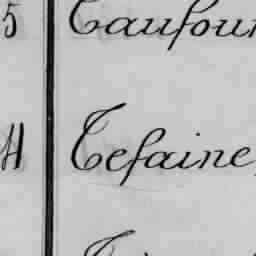 5 Taufour
H Tefaine,